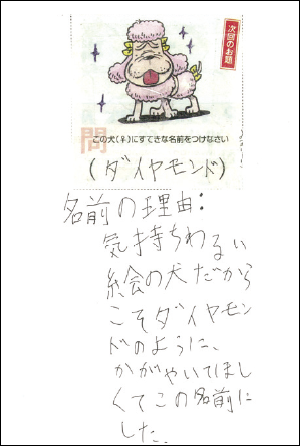 次回のお題
問
この犬(♀)にすてきな名前をつけなさい
(ダイヤモンド)
名前の理由:
気持ちわるい
絵の犬だから
こそダイヤモン
ドのように、
かがやいてほし
くてこの名前に
した。